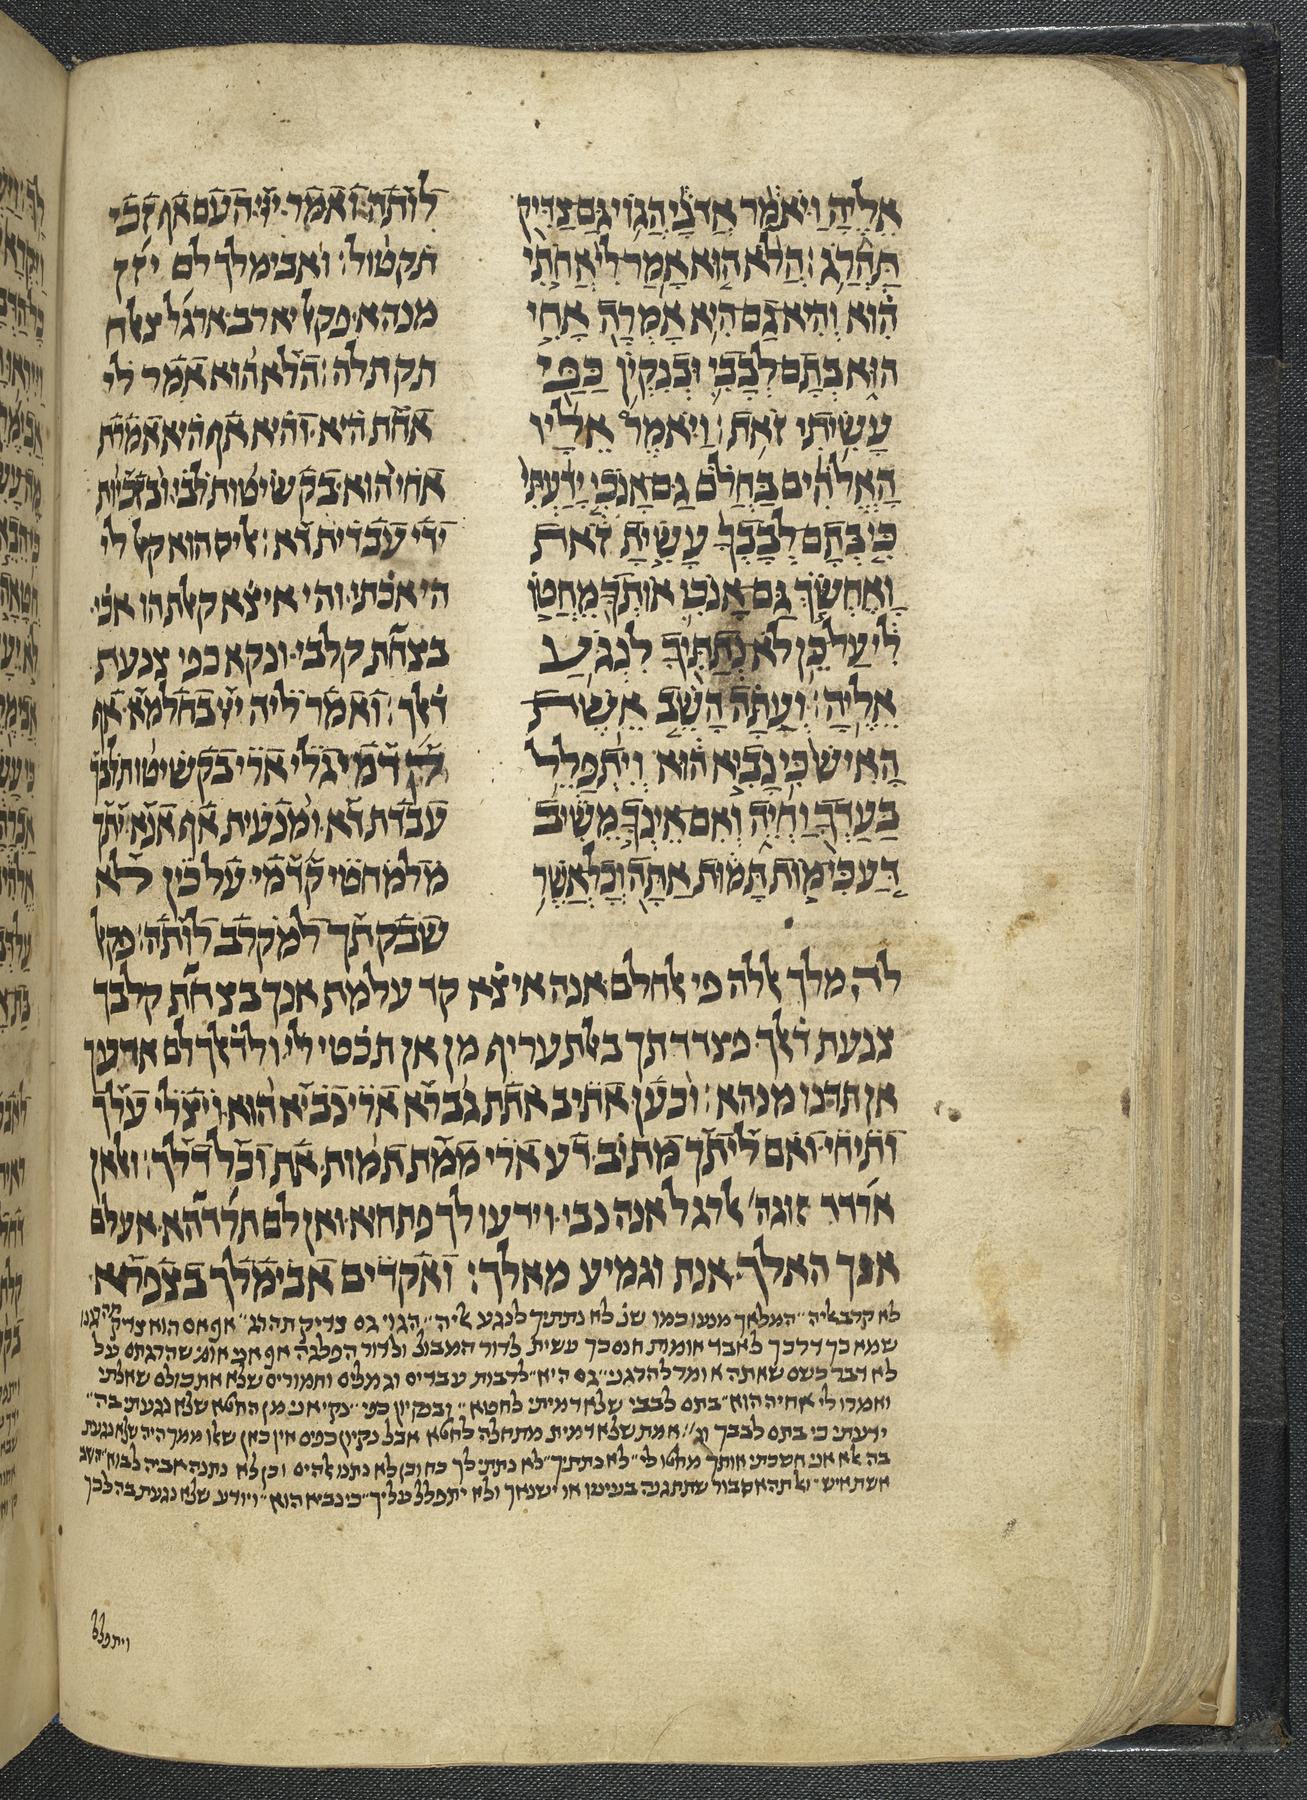 אֵלֶיהָ וַיֹּאמַר אֲדֹנָי הֲגוֹי גַּם צַדִּיק
תַּהֲרֹג׃ הֲלֹא הוּא אָמַר לִי אֲחֹתִי
הִוא וְהִיא גַם הִיא אָמְרָה אָחִי
הוּא בְּתָם לְבָבִי וּבְנִקְיֹן כַּפַּי
עָשִׂיתִי זֹאת׃ וַיֹּאמֶר אֵלָיו
הָאֱלֹהִים בַּחֲלֹם גַּם אָנֹכִי יָדַעְתִּי
כִּי בְתָם לְבָבְךָ עָשִׂיתָ זֹּאת
וָאֶחְשֹׂךְ גַּם אָנֹכִי אוֹתְךָ מֵחֲטוֹ
לִי עַל כֵּן לֹא נְתַתִּיךָ לִנְגֹּעַ
אֵלֶיהָ׃ וְעַתָּה הָשֵׁב אֵשֶׁת
הָאִישׁ כִּי נָבִיא הוּא וְיִתְפַּלֵּל
בַּעַדְךָ וֶחְיֵה וְאִם אֵינְךָ מֵשִׁיב
דַּע כִּי מוֹת תָּמוּת אַתָּה וְכָל אֲשֶׁר
לותה ואמר ייי העם אף זכי
תקטול׃ ואבימלך לם
מנהא פקאל יא רב ארגל צאלח
תקתלה׃ הלא הוא אמר לי
אחת היא והיא אף היא אמרת
אחי הוא בקשיטות לבי ובזכאות
ידי עבדית דא׃ אליס הוא קאל לי
הי אכתי והי איצא קאלת הו אכי
בצחת קלבי ונקא כפי צנעת
דאלך׃ ואמר ליה ייי בחלמא אף
קדמי גלי ארי בקשיטות לבך
עבדת דא ומנעית אף אנא יתך
מלמחטי קדמי על כין לא
שבקתך למקרב לותה׃ פקאל
לה מלך אללה פי אלחלם אנה איצא קד עלמת אנך בצחת קלבך
צנעת דאלך פצדדתך מן אן תכטי לי ולדאלך לם אדעך
אן תדנו מנהא׃ וכען אתיב אתת גברא ארי נביא הוא ויצלי עלך
ותיחי ואם ליתך מתיב דע ארי ממת תמות את וכל דלך׃ ואלאן
ארדד זוגה אלרגל אנה נבי וידעו לך פתחיא ואן לם תרדהא אעלם
אנך האלך אנת וגמיע מאלך׃ ואקדים אבימלך בצפרא
לא קרב אליה המלאך מנעו כמו שנ׳ לא נתתיך לנגע אליה הגוי גם צדיק תהרג אף אם הוא צדיק
שמא כך דרכך לאבד אומות חנם כך עשית לדור המבול ולדור הפלגה אף אני אומ׳ שהרגתם על
לא דבר כשם שאתה אומר להרגני גם היא לרבות עבדים וגמלים וחמורים שלא את כולם שאלתי
ואמרו לי אחיה הוא בתם לבבי שלא דמיתי לחטוא ובנקיון כפי נקי אני מן החטא שלא נגעתי בה
ידעתי כי בתם לבבך וג׳ אמת שלא דמית מתחלה לחטוא אבל נקיון כפים אין כאן שלא ממך היה שלא נגעת
בה אלא אני חשכתי אותך מחטו לי לא נתתיך לא נתתי לך כח וכן לא נתנו אלהים וכן לא נתנה אביה לבוא השב
אשת האיש ואל תהא סבור שתתגנה בעיניו או ישנאך ולא יתפלל עליך כי נביא הוא ויודע שלא נגעת בה לכך
ויתפלל